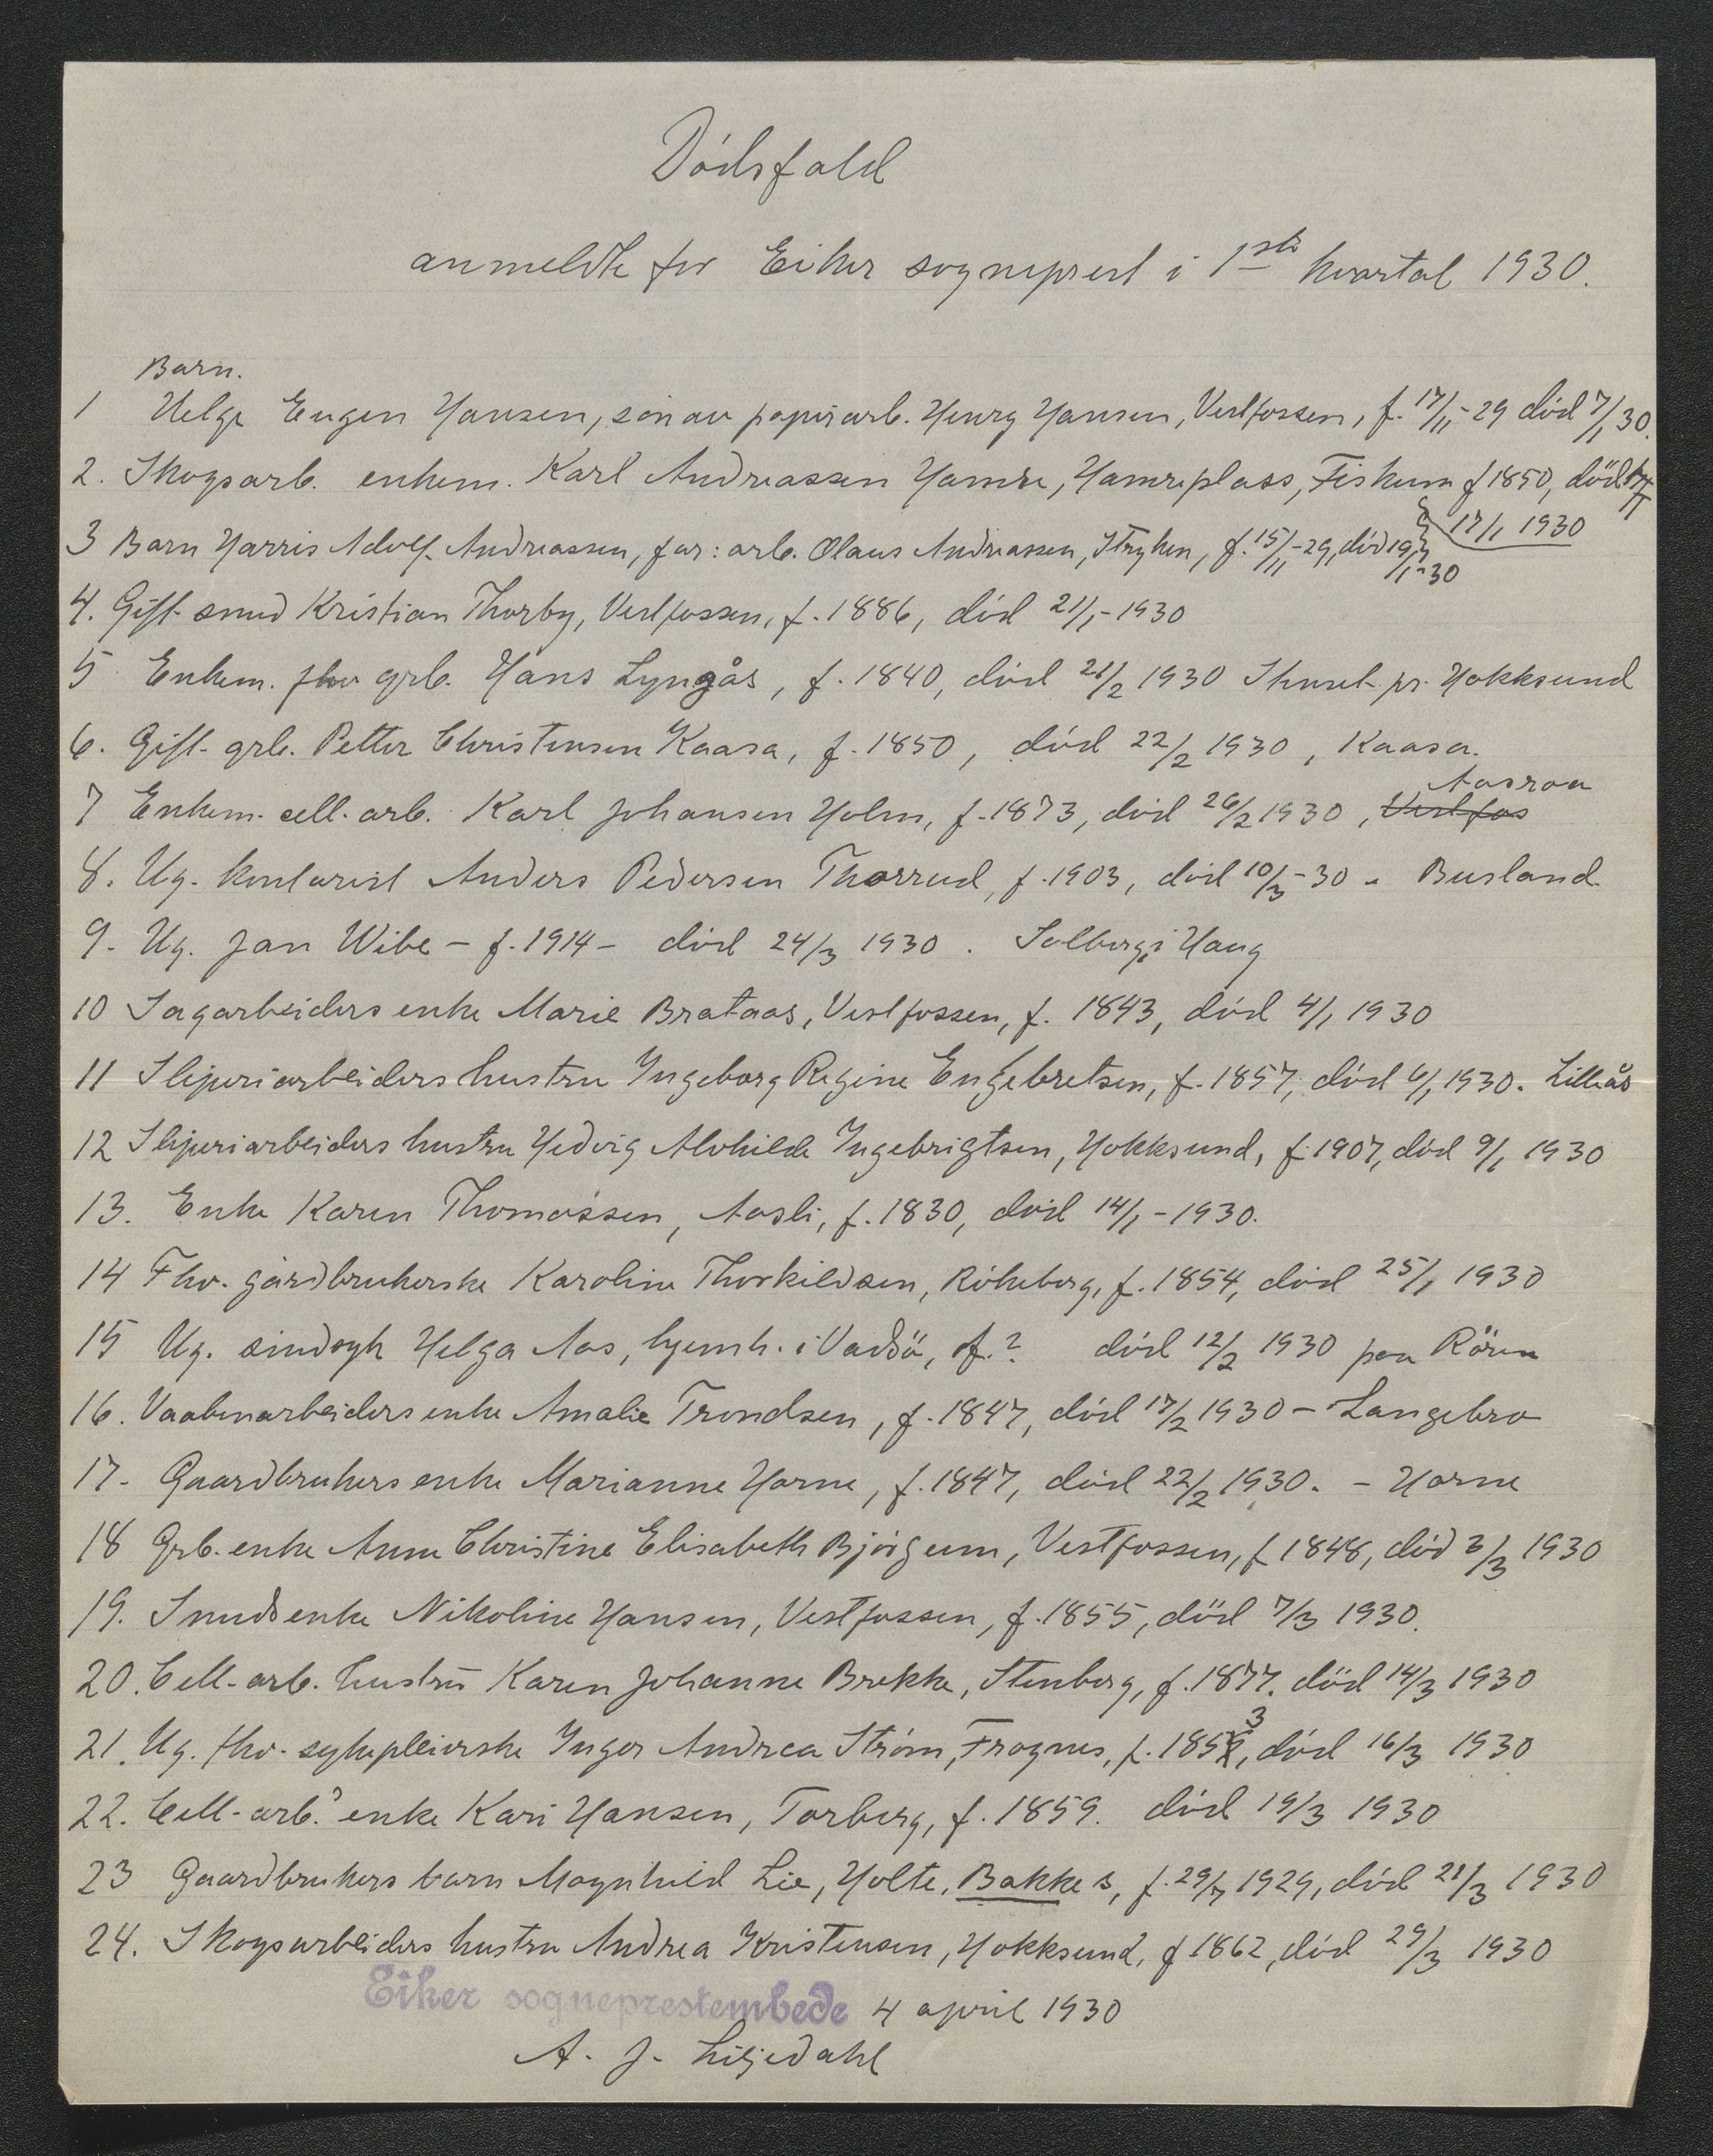 Dödsfald
anmeldte for Eiker sogneprest i 1ste kvartal 1930.
Barn.
1 Helge Eugen Hansen, sön av papirarb. Henry Hansen, Vestfossen, f. 17/11-29 död 7/1 30.
2. Skogsarb. enkem. Karl Andreassen Hamre, Hamreplass, Fiskum f 1850, död
17/1 1930
3 Barn Harris Adolf Andreassen, far: arb. Olaus Andreassen, Stryken, f. 15/11-29, död 19/1-30
4. Gift smed Kristian Thorby, Vestfossen, f. 1886, död 21/1-1930
5 Enkem. fhv grb. Hans Lyngås, f. 1840, död 21/2 1930 pr. Hokksund
6. Gift grb. Petter Christensen Kaasa, f. 1850, död 22/2 1930, Kaasa.
Aasroa
7 Enkem. cell. arb. Karl Johansen Holm, f. 1873, död 26/2 1930, Vestfos
8. Ug. kontorist Anders Pedersen Thorrud, f. 1903, död 10/3-30 - Busland.
9. Ug. Jan Wibe - f. 1914 - död 24/3 1930. Solberg i Haug
10 Sagarbeiders enke Marie Brataas, Vestfossen, f. 1843, död 4/1 1930
11 Sliperiarbeiders hustru Ingeborg Regine Engebretsen, f. 1857, död 6/1 1930. Lilleås
12 Sliperiarbeiders hustru Hedvig Alvhilde Ingebrigtsen, Hokksund, f. 1907, död 9/1 1930
13. Enke Karen Thomassen, Aasli, f. 1830, död 14/1-1930.
14 Fhv. gårdbrukerske Karoline Thorkildsen, Rökeberg, f. 1854, död 25/1 1930
15 Ug. sindsyk Helga Aas, hjemh. i Vadsö, f. ? död 12/2 1930 paa Rören
16. Vaabenarbeiders enke Amalie Trondsen, f. 1847, död 17/2 1930 - Langebro
17. Gaardbrukers enke Marianne Horne, f. 1847, död 22/2 1930. - Horne
18 Grb. enke Anne Christine Elisabeth Bjørgum, Vestfossen, f 1848, död 3/3 1930
19. Smeds enke Nikoline Hansen, Vestfossen, f. 1855, död 7/3 1930.
20. Cell-arb. hustru Karen Johanne Brekke, Stenberg, f. 1877. död 14/3 1930
21. Ug. fhv. sykepleierske Inger Andrea Strøm, Frognes, f. 1853, död 16/3 1930
22. Cell-arb.s enke Kari Hansen, Torberg, f. 1859. död 19/3 1930
23 Gaardbrukers barn Magnhild Lie, Holte, Bakke s, f. 29/7 1929, död 21/3 1930
24. Skogsarbeiders hustru Andrea Kristensen, Hokksund, f 1862, död 29/3 1930
Eiker sogneprestembede 4 april 1930
A. J. Liljedahl